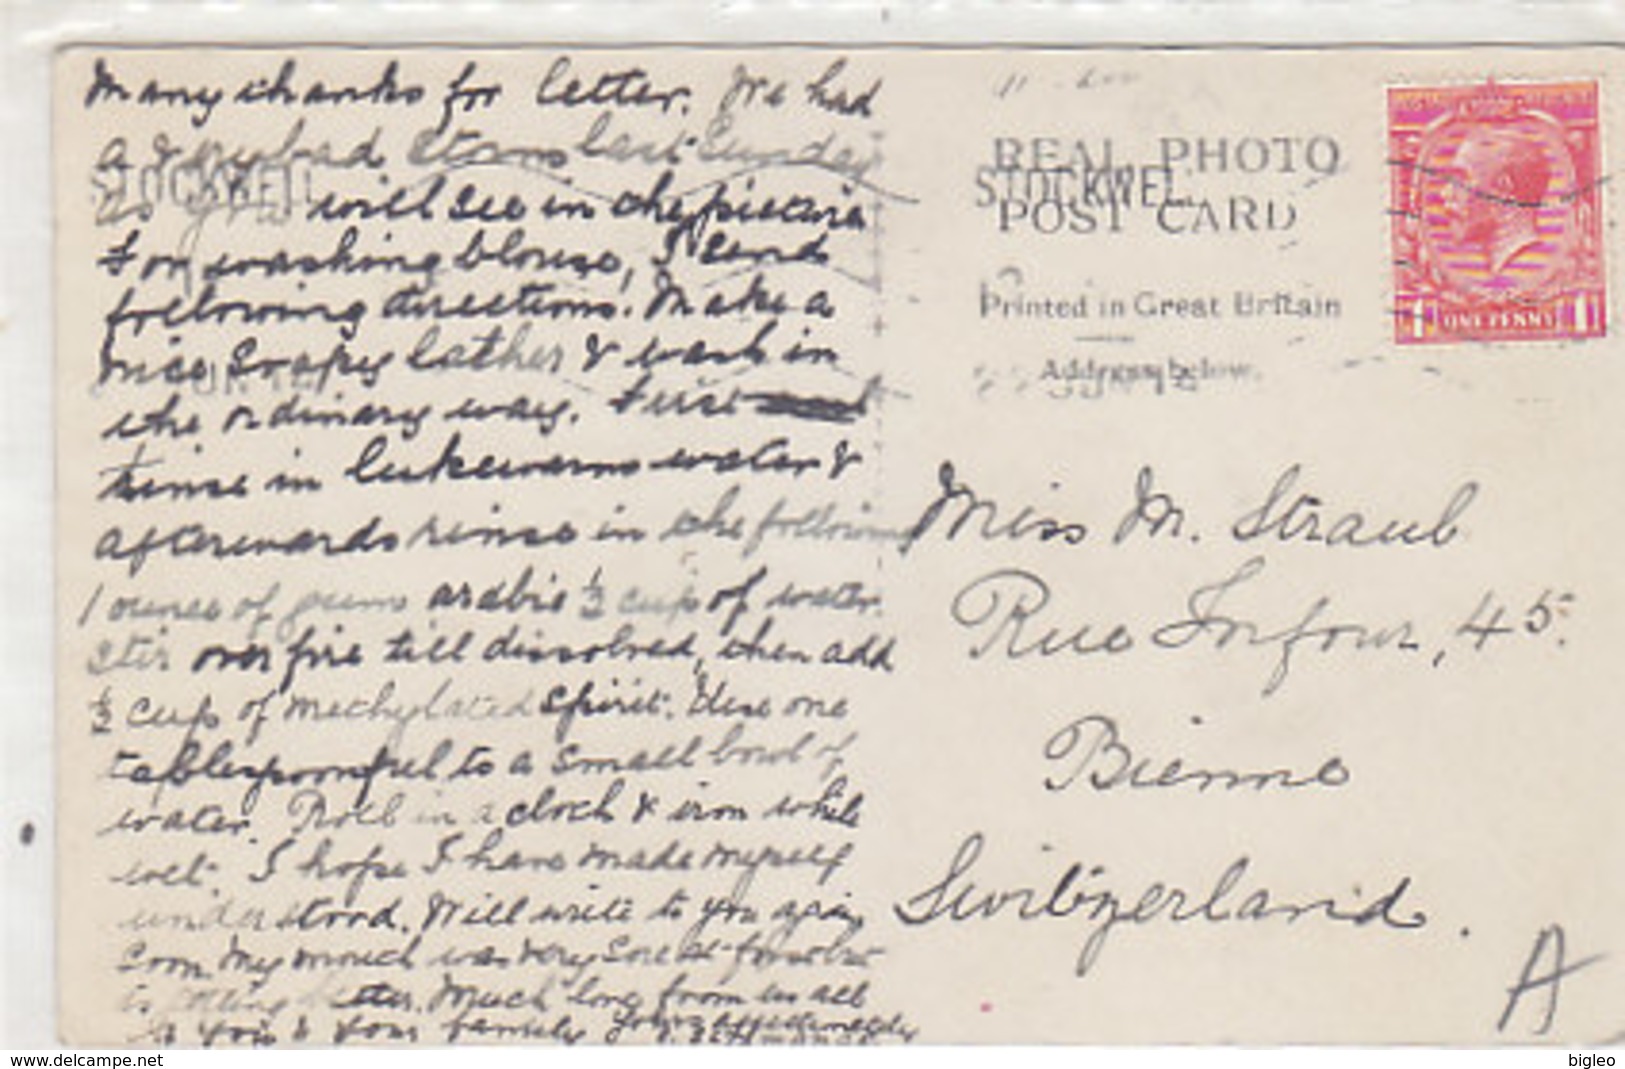 Many thanks for letter. We had
a very bad storm last Sunday
as you will see in the picture
For washing blouse, I send
following directions. Make a
nice soapy lather & wash in
the ordinary way. First
rinse in lukewarm water &
afterwards rinse in the following
1 ounce of gum arabic ½ cup of water.
Stir over fire till dissolved, then add
½ cup of methylated spirit. Use one
tablespoonful to a small bowl of
water. Roll in a cloth & iron while
wet. I hope I have made myself
understood. Will write to you again
soon. My mouth was very sore at first but
is getting better. Much love from us all
to you & your family Yours affectionately
REAL PHOTO
POST CARD
STOCKWELL
STOCKWELL
Printed in Great Britain
Address below.
ONE PENNY
Miss M. Straub
Rue Infour, 45.
Bienne
Switzerland.
A
www.delcampe.net
bigleo